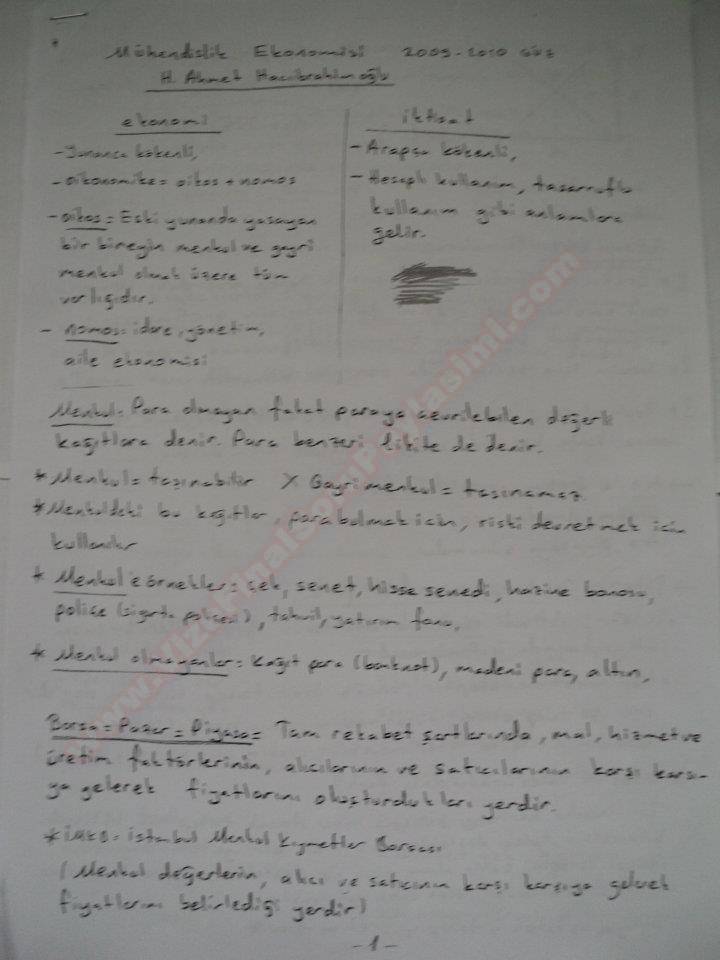 Mühendislik Ekonomisi 2009-2010 Güz
H. Ahmet Hacıibrahimoğlu
ekonomi
- Yunanca kökenli,
- oikonomike = oikos + nomos
- oikos = Eski yunanda yaşayan
bir bireyin menkul ve gayri
menkul olmak üzere tüm
varlığıdır.
- nomos = idare, yönetim,
aile ekonomisi
iktisat
- Arapça kökenli,
- Hesaplı kullanım, tasarruflu
kullanım gibi anlamlara
gelir.
Menkul = Para olmayan fakat paraya çevrilebilen değerli
kağıtlara denir. Para benzeri likite de denir.
* Menkul = taşınabilir X Gayrimenkul = taşınamaz
* Menkuldeki bu kağıtlar, para bulmak için, riski devretmek için
kullanılır
* Menkul e örnekler = çek, senet, hisse senedi, hazine bonosu,
poliçe (sigorta poliçesi), tahvil, yatırım fonu,
* Menkul olmayanlar = Kağıt para (banknot), madeni para, altın,
Borsa = Pazar = Piyasa = Tam rekabet şartlarında, mal, hizmet ve
üretim faktörlerinin, alıcılarının ve satıcılarının karşı karşı-
ya gelerek fiyatlarını oluşturdukları yerdir.
* İMKB = İstanbul Menkul Kıymetler Borsası
(Menkul değerlerin, alıcı ve satıcının karşı karşıya gelerek
fiyatlarını belirlediği yerdir)
- 1 -
www.VizeFinalSoruPaylasimi.com